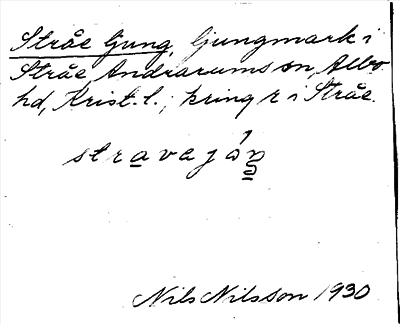 Stråe ljung, ljungmark i
Stråe, Andrarums sn, Albo
hd, Krist. l.; kring r i Stråe.
stravejôn
Nils Nilsson 1930